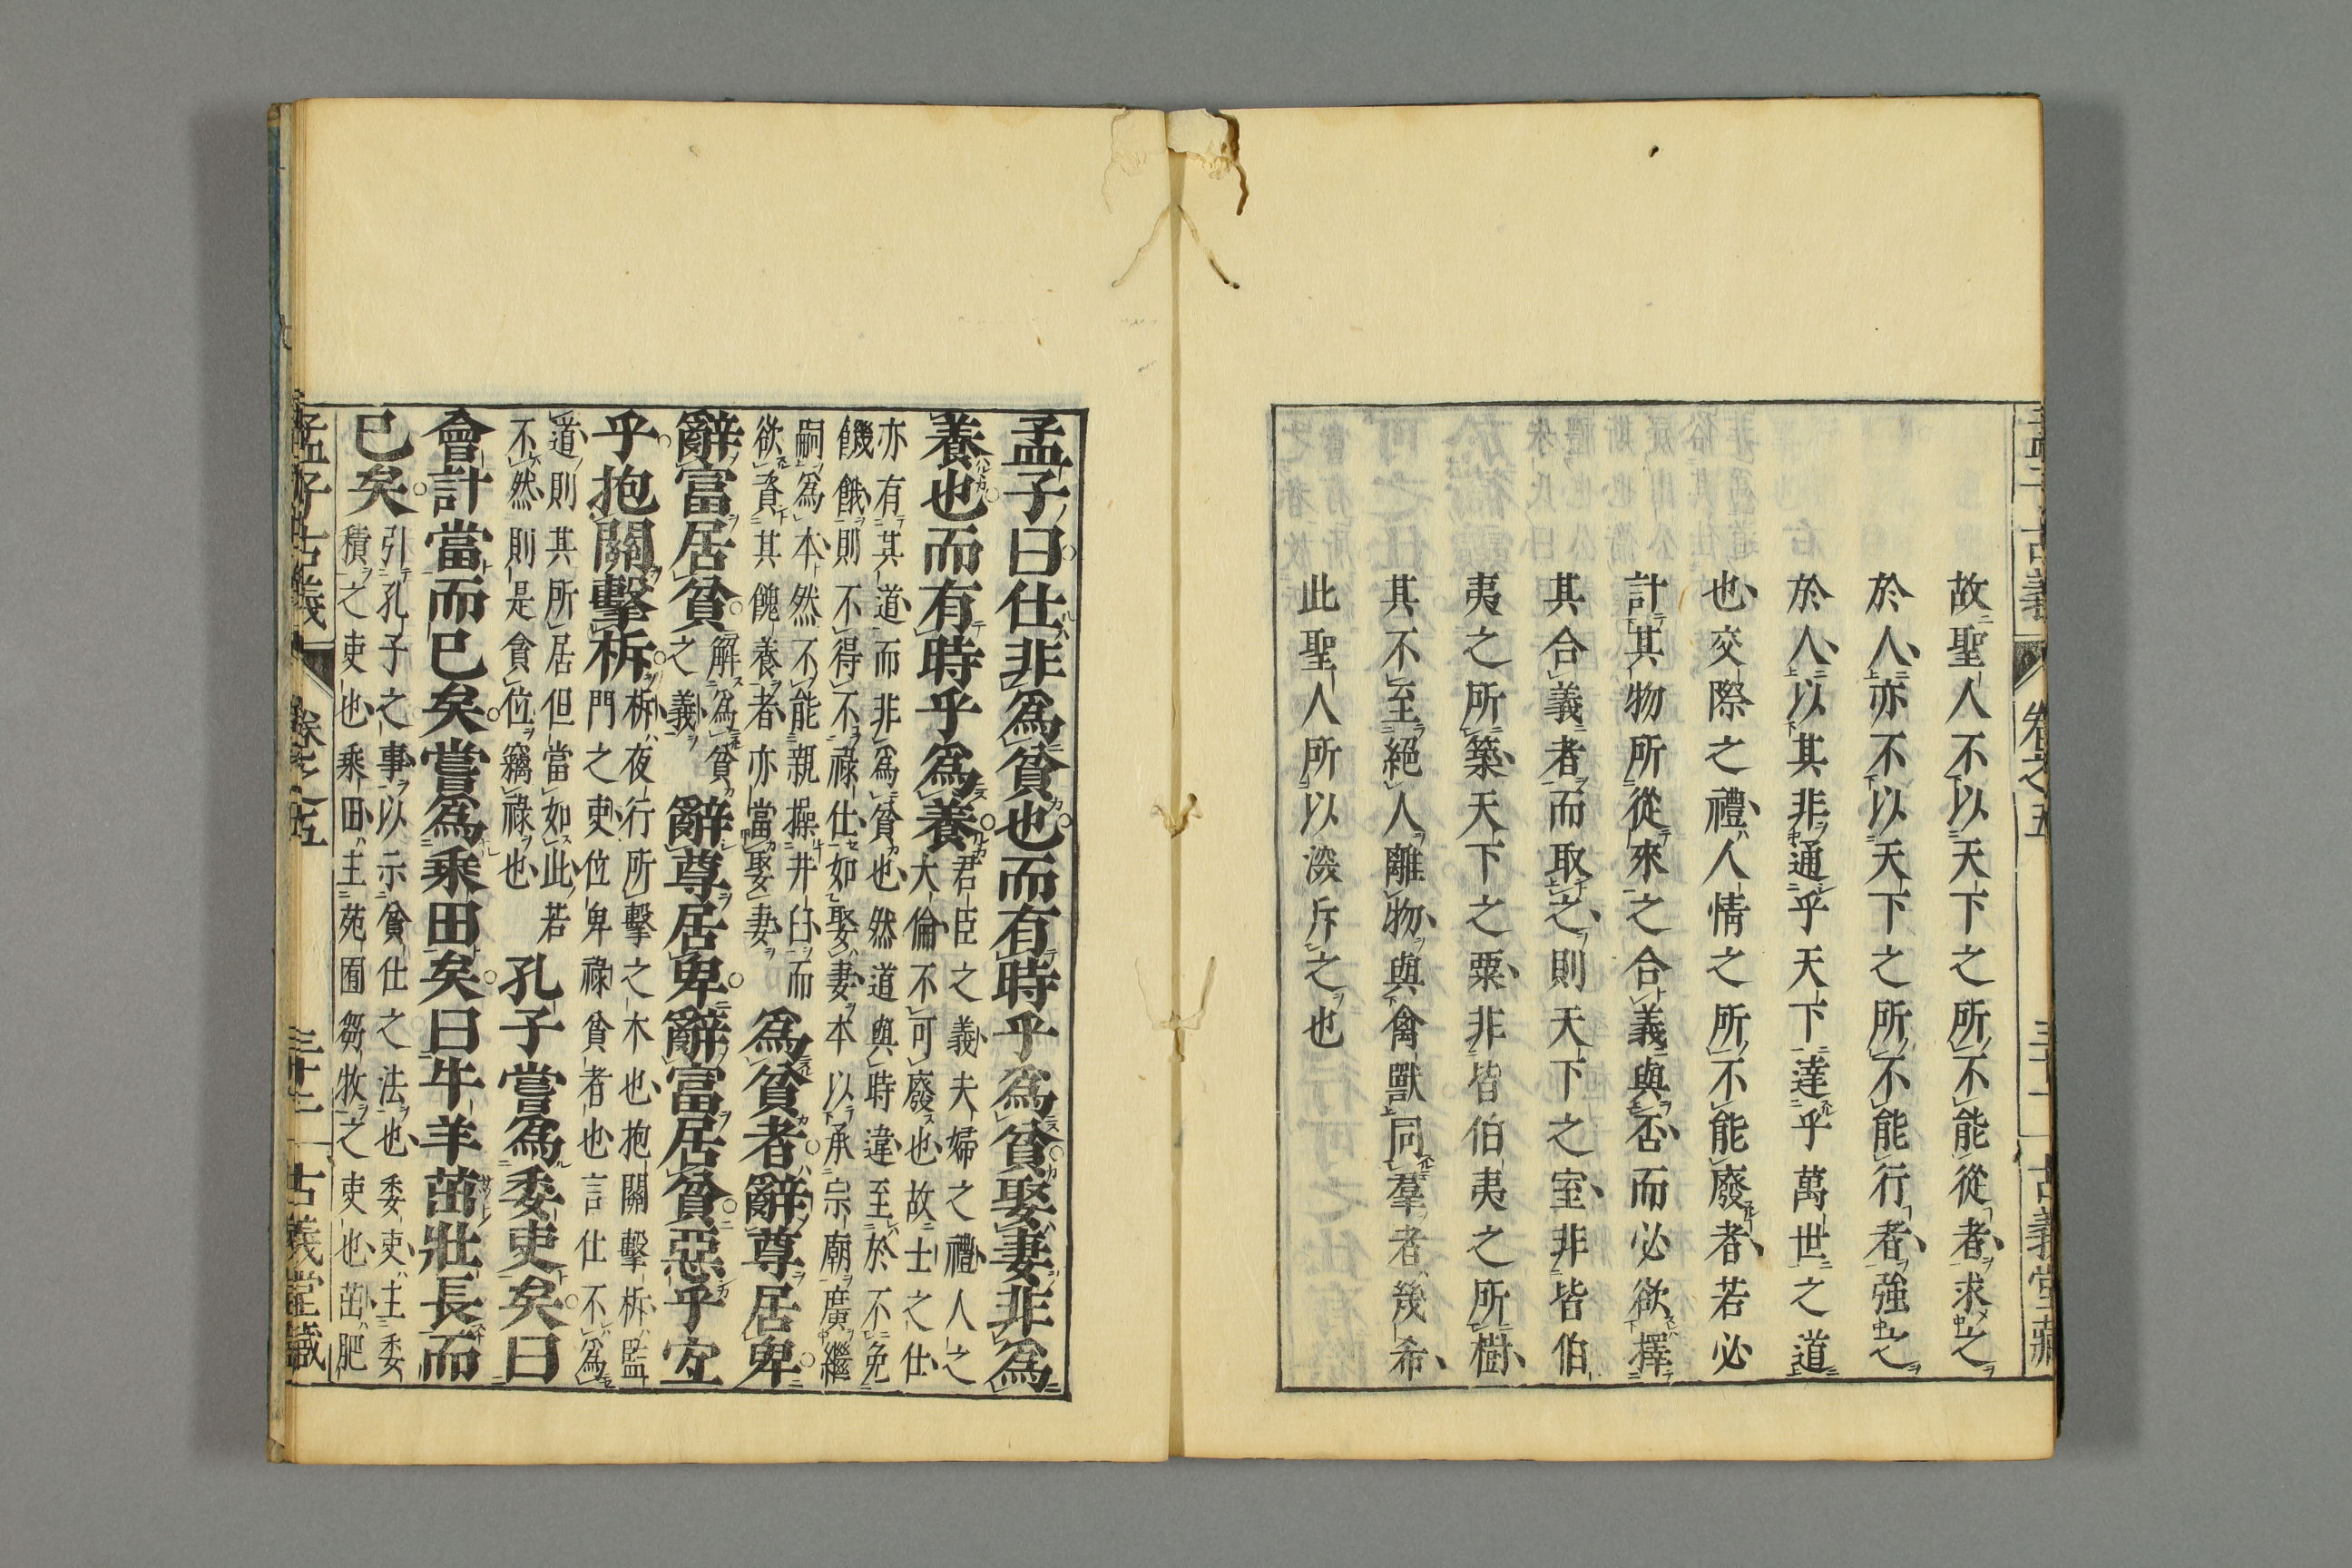 孟子古義 卷之五 三十一 古義堂藏
故聖人不以天下之所不能從者求之
於人亦不以天下之所不能行者強之
於人以其非通乎天下達乎萬世之道
也交際之禮人情之所不能廢者若必
計其物所從來之合義與否而必欲擇
其合義者而取之則天下之室非皆伯
夷之所築天下之粟非皆伯夷之所樹
其不至絕人離物與禽獸同羣者幾希
此聖人所以淡斥之也
孟子曰仕非爲貧也而有時乎爲貧娶妻非爲
養也而有時乎爲養
君臣之義夫婦之禮人之
大倫不可廢也故士之仕
亦有其道而非爲貧也然道與時違至於不免
饑餓則不得不祿仕如娶妻本以承宗廟廣繼
嗣爲本然不能親操井臼而
欲資其餽養者亦當娶妻
爲貧者辭尊居卑
辭富居貧
解爲貧
之義
辭尊居卑辭富居貧惡乎宜
乎抱關擊柝
柝夜行所擊之木也抱關擊柝監
門之吏位卑祿貧者也言仕不爲
道則其所居但當如此若
不然則是貪位竊祿也
孔子嘗爲委吏矣曰
會計當而已矣嘗爲乘田矣曰牛羊茁壯長而
已矣
引孔子之事以示貧仕之法也委吏主委
積之吏也乘田主苑囿芻牧之吏也茁肥
孟子古義 卷之五 三十二 古義堂藏